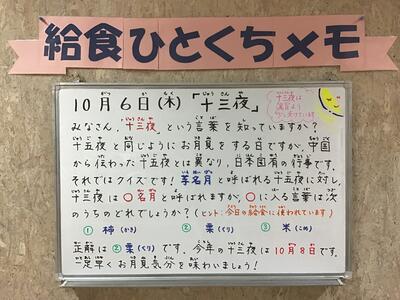 給食ひとくちメモ
10月6日(木)「十三夜」
十三夜は
満月より
みなさん、十三夜という言葉を知っていますか？
十五夜と同じようにお月見をする日ですが、中国
から伝わった十五夜とは異なり、日本固有の行事です。
それではクイズです！芋名月と呼ばれる十五夜に対し、
十三夜は〇名月と呼ばれますが、〇に入る言葉は次
のうちのどれでしょうか？(ヒント：今日の給食に使われています)
① 柿(かき) ② 栗(くり) ③ 米(こめ)
正解は②栗(くり)です。今年の十三夜は10月8日です。
一足早くお月見気分を味わいましょう！